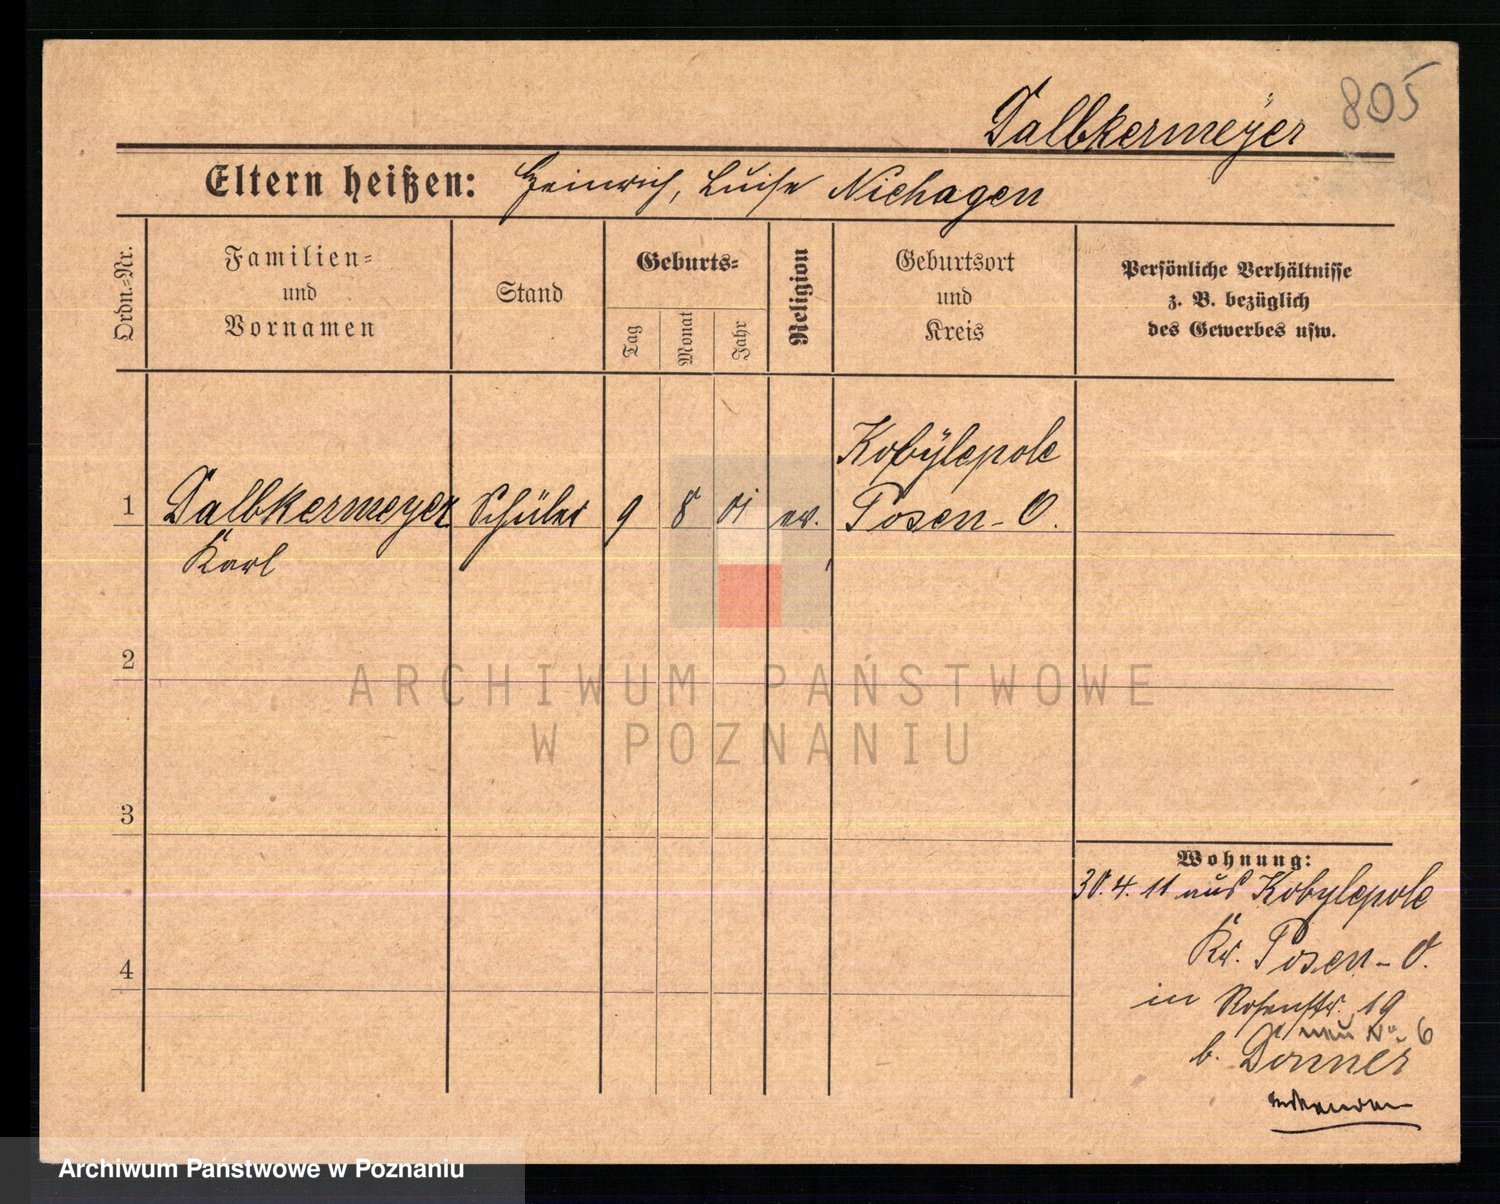 805
Dalbkermeyer
Eltern heißen: Heinrich, Luise Niehagen
Ordn.-Nr.
Familien-
und
Vornamen
Stand
Geburts-
Tag
Monat
Jahr
Religion
Geburtsort
und
Kreis
Persönliche Verhältnisse
z. B. bezüglich
des Gewerbes usw.
Kobylepole
1 Dalbkermeyer Schüler 9 8 01 ev. Posen-O.
Karl
2
ARCHIWUM PAŃSTWOWE
W POZNANIU
3
Wohnung:
30.4.11 aus Kobylepole
Kr. Posen-O.
4
in Rosenstr. 19
neu No 6
b. Donner
Archiwum Państwowe w Poznaniu